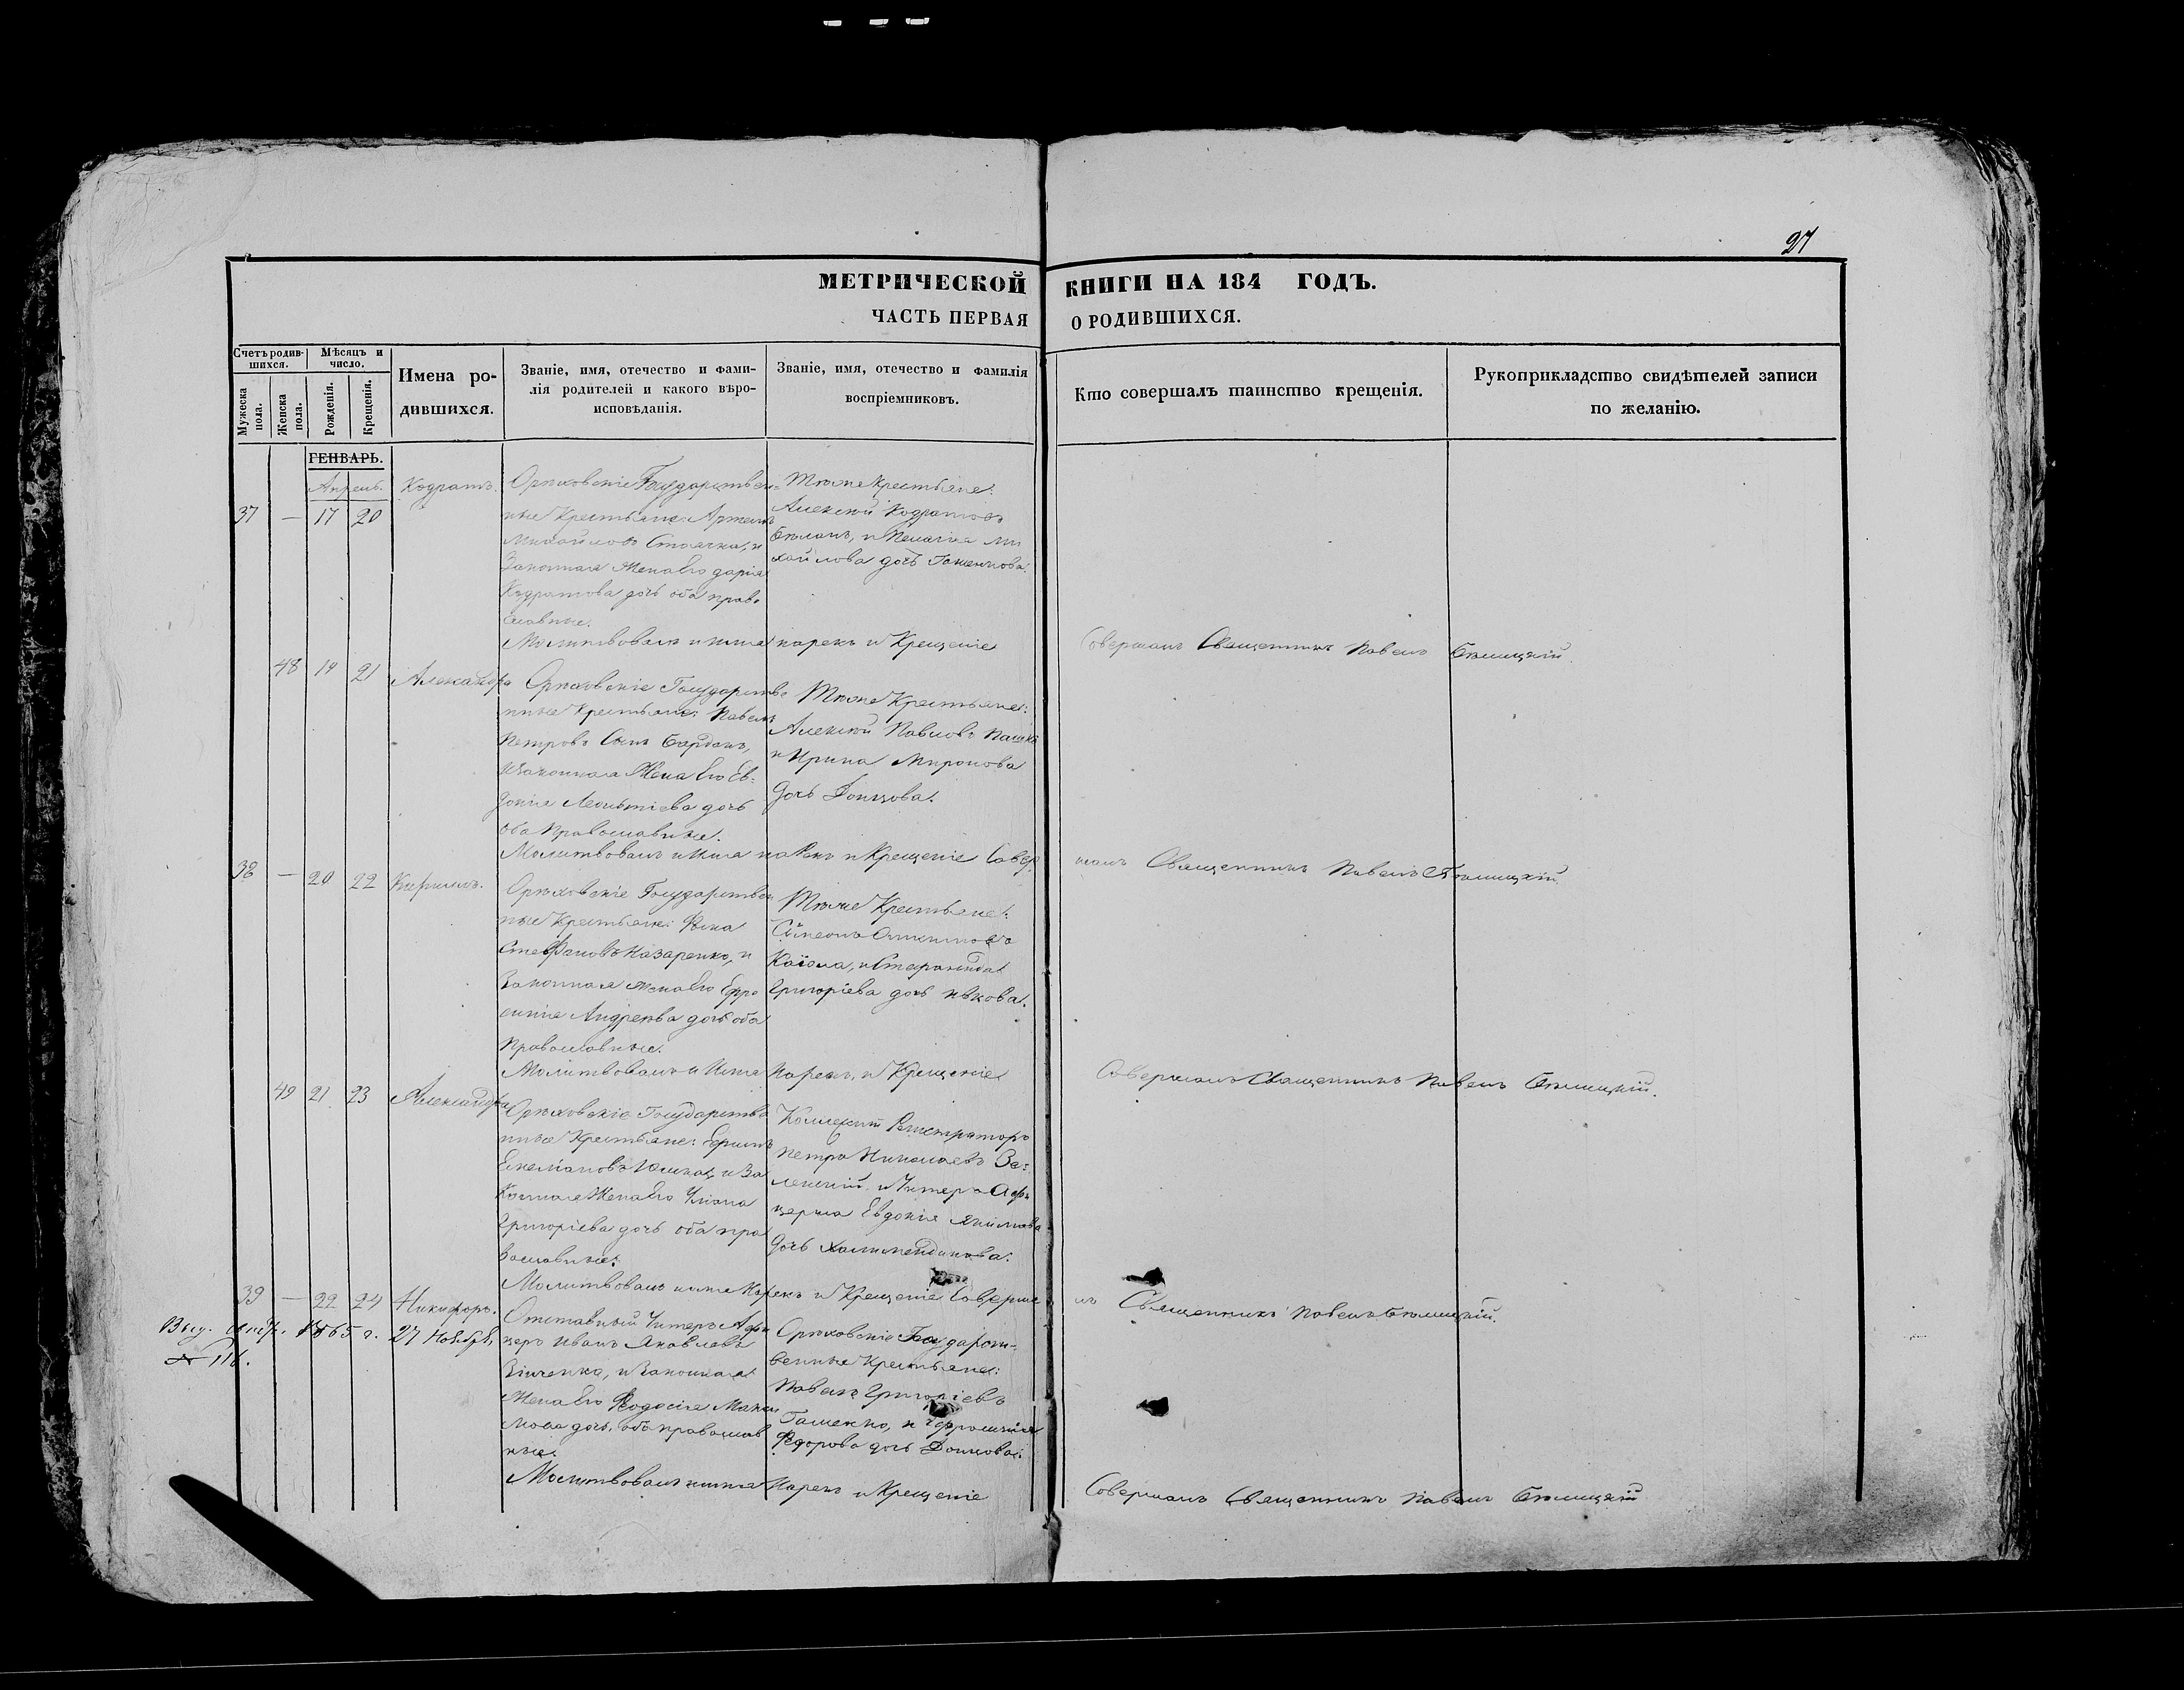 27
МЕТРИЧЕСКОЙ КНИГИ НА 184 ГОДЪ.
ЧАСТЬ ПЕРВАЯ О РОДИВШИХСЯ.
Счетъ родив-
шихся.
Мужеска пола.
Женска пола.
Мѣсяцъ и
число.
Рожденія.
Крещенія.
Имена ро-
дившихся.
Званіе, имя, отечество и фами-
лія родителей и какого вѣро-
исповѣданія.
Званіе, имя, отечество и фамилія
воспріемниковъ.
Кто совершалъ таинство крещенія.
Рукоприкладство свидѣтелей записи
по желанію.
ГЕНВАРЬ.
Апрель.
37 — 17 20
Кодратъ.
Орѣховскіе Государствен-
ные Крестьяне: Артемъ
Михайловъ и
Законная Жена Его Дарія
Кодратова дочь оба право
славные.
Тѣже крестьяне:
Алексѣй Кодратовъ
и Пелагія Ми
хайлова дочь
Молитвовалъ и имя нарекъ и Крещеніе Совершалъ Священникъ Павелъ Бѣлицкій.
48 19 21
Александра
Орѣховскіе Государстве
нные Крестьяне: Павелъ
Петровъ Сынъ
и Законная Жена Его Ев-
докія Леонтіева дочь
оба Православные.
Тѣже Крестьяне:
Алексѣй Павловъ
и Ирина Миронова
дочь Донцова.
Молитвовалъ и Имя нарекъ и Крещеніе Совер шалъ Священникъ Павелъ Бѣлицкій.
38 — 20 22
Кирилъ.
Орѣховскіе Государствен
ные Крестьяне: Фока
Стефановъ Назаренко, и
Законная жена Его Ефро
синія Андреева дочь оба
православные.
Тѣже Крестьяне:
Симеонъ
и Стефанида
Григоріева дочь
Молитвовалъ и Имя Нарекъ, и Крещеніе Совершалъ Священникъ Павелъ Бѣлицкій.
49 21 23
Александра
Орѣховскіе Государстве
нные Крестьяне: Ефимъ
Емеліановъ и За
конная Жена Его
Григоріева дочь оба пра
вославные.
Коллежскій Регистраторъ
Петръ Николаевъ Зе-
ленскій и Унтеръ Офи
церша Евдокія Якимова
дочь
Молитвовалъ и имя Нарекъ и Крещеніе Соверша лъ Священникъ Павелъ Бѣлицкій.
39 — 22 24
Никифоръ.
Выд. 1865 г. 27 Ноября
№ 116.
Отставный Унтеръ Офи
церъ Иванъ Яковлевъ
Зінченко, и Законная
Жена Его Феодосія Макси
мова дочь, оба православ
ные.
Орѣховскіе Государст-
венные Крестьяне:
Павелъ Григоріевъ
Гашенко, и Ефросинія
Федорова дочь Донцова.
Молитвовалъ и имя Нарекъ и Крещеніе Совершалъ Священникъ Павелъ Бѣлицкій